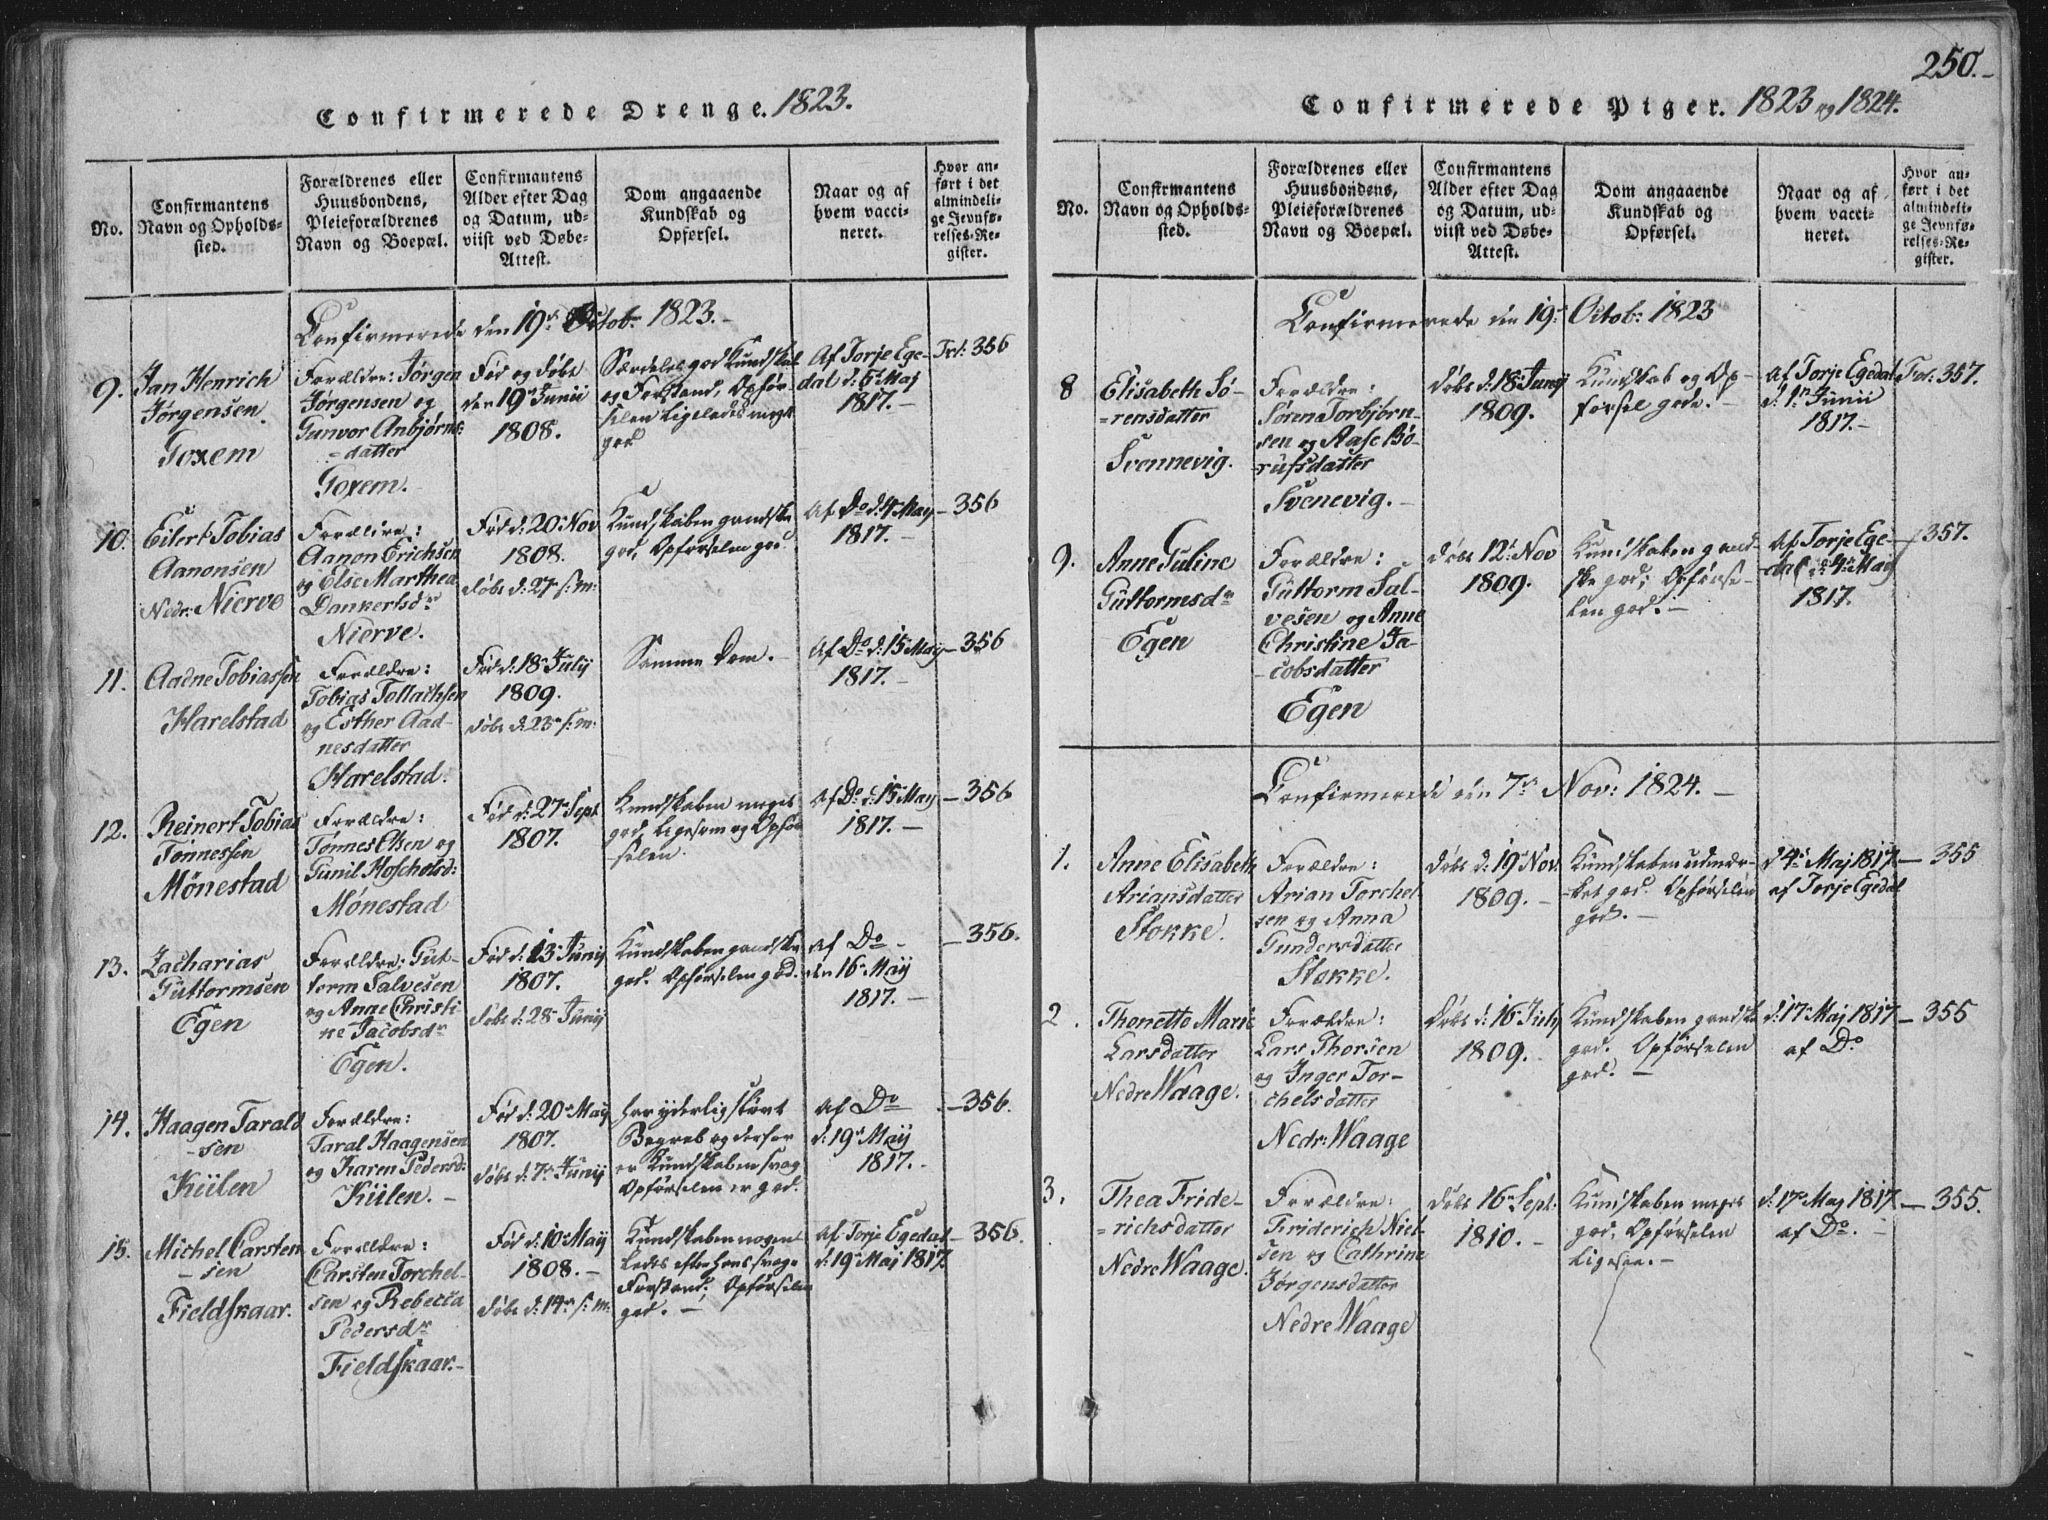 250.-
Confirmerede Drenge. 1823.
No.
Confirmantens
Navn og Opholds-
sted.
Forældrenes eller
Huusbondens,
Pleieforældrenes
Navn og Boepæl.
Confirmantens
Alder efter Dag
og Datum, ud-
viist ved Døbe-
Attest.
Dom angaaende
Kundskab og
Opførsel.
Naar og af
hvem vacci-
neret.
Hvor an-
ført i det
almindeli-
ge Jevnfø-
relses-Re-
gister.
Confirmerede den 19de Octob: 1823.-
9.
Jan Henrich
Jørgensen.
Foxem
Forældre: Jørgen
Jørgensen og
Gunvor Anbjørns
=datter
Foxem.
Fød og døbt
den 19de Junii
1808.
Særdeles god Kundskab
og Forstand, Opfør-
selen ligeledes meget
god
Af Torje Ege-
dal d: 5te Maj
1817.-
Fol: 356
10.
Eilert Tobias
Aanonsen
Nedr: Nierve
Forældre:
Aanon Erichsen
og Else Marthea
Dankertsdr
Nierve.
Fød d: 20de Nov
1808.
døbt d: 27de s: m:
Kundskaben gandske
god, Opførselen god.
Af Do d: 4de May
1817.-
356
11.
Aadne Tobiassen
Harelstad
Forældre:
Tobias Tollachsen
og Esther Aad-
nesdatter
Harelstad.
Fød d: 18de July
1809.
døbt d: 23de s: m:
Samme Dom.
Af Do d: 15de May
1817.-
356
12.
Reinert Tobias
Tønnessen
Mønestad
Forældre:
Tønnes Elsen og
Gunil
Mønestad
Fød d: 27de Sept
1807.
Kundskaben meget
god, ligesom og Opfør
selen.
Af Do d: 15de May
1817.-
356
13.
Zacharias
Guttormsen
Egen
Forældre: Gut-
torm Salvesen
og Anne Christi-
ne Jacobsdr
Egen.
Fød d: 13de Junij
1807.
døbt d: 28de Junij
Kundskaben gandske
god. Opførselen god.
Af Do -
den 16de Maij
1817.-
356.
14.
Haagen Tarald
-sen
Kiilen
Forældre:
Taral Haagensen
og Karen Pedersd:
Kiilen.-
Fød d: 20de Maij
1807.
døbt d: 7de Junij
har yderlig slövt
Begreb og derfor
er Kundskaben svag
Opførselen er god.
Af Do
d: 19de Maij
1817.-
356.
15.
Michel Carsten
-sen
Fieldskaar.
Forældre:
Carsten Torchel-
sen og Rebecca
Pedersdr
Fieldskaar.-
Fød d: 10de Maij
1808.-
døbt d: 14de s: m:
Kundskaben nogen
ledes efter hans svage
Forstand; Opførselen
god.-
Af Torje Egedal
d: 19de Maj 1817.
356.
Confirmerede Piger. 1823 og 1824.
No.
Confirmantens
Navn og Opholds-
sted.
Forældrenes eller
Huusbondens,
Pleieforældrenes
Navn og Boepæl.
Confirmantens
Alder efter Dag
og Datum, ud-
viist ved Døbe-
Attest.
Dom angaaende
Kundskab og
Opførsel.
Naar og af
hvem vacci-
neret.
Hvor an-
ført i det
almindeli-
ge Jevnfø-
relses-Re-
gister.
Confirmerede den 19de Octob: 1823
8
Elisabeth Sø-
=rensdatter
Svennevig.
Forældre:
Søren Torbjørn-
sen og Aase Bø-
rufsdatter
Svenevig.-
døbt d: 18de Junij
1809.
Kundskab og Op-
førsel gode.-
Af Torje Egedal
d: 1ste Junii
1817.-
Fol: 357.
9.
Anne Guline
Guttormsdr
Egen
Forældre:
Guttorm Sal-
vesen og Anne
Christine Ja-
cobsdatter
Egen
døbt 12te Nov
1809.
Kundskaben gand-
ske god; Opførse-
len god.-
Af Torje Ege-
dal d: 4de Maij
1817.
357.
Confirmerede den 7de Nov: 1824.-
1.
Anne Elisabeth
Ariansdatter
Stokke.
Forældre:
Arian Torchel-
sen og Anna
Gundersdatter
Stokke.
døbt d: 19de Nov.
1809.-
Kundskaben udmær-
ket god. Opførselen
god.-
d: 4de Maj 1817.
af Torje Egedal
355
2.
Thonette Marie
Larsdatter
Nedre Waage.
Forældre:
Lars Thorsen
og Inger Tor-
chelsdatter
Nedr: Waage
døbt d: 16de July
1809.-
Kundskaben gandske
god. Opførselen
god.-
d: 17de Maj 1817.
af Do
355
3.
Thea Fride-
=richsdatter
Nedre Waage.
Forældre:
Friderich Niel-
sen og Cathrine
Jørgensdatter
Nedre Waage
døbt 16de Sept:
1810.-
Kundskaben meget
god, Opførselen
ligesaa.-
d: 17de May 1817.
af Do.-
355.